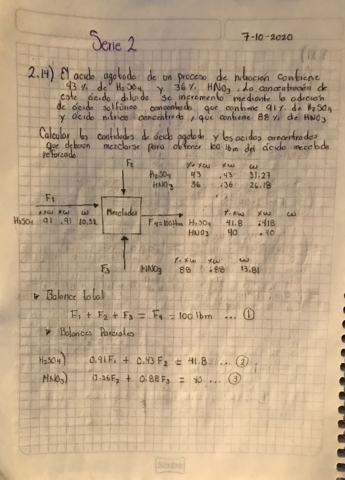 7-10-2020
Serie 2
2.14) El acido agotado de un proceso de nitración contiene
43 % de H2SO4 y 36 % HNO3. La concentración de
este ácido diluido se incrementa mediante la adición
de ácido sulfúrico concentrado que contiene 91 % de H2SO4
y ácido nítrico concentrado, que contiene 88 % de HNO3
Calcular las cantidades de ácido agotado y los acidos concentrados
que deberan mezclarse para obtener 100 lbm del ácido mezclado
reforzado.
F2 %xw xw w
H2SO4 43 .43 31.27
HNO3 36 .36 26.18
F1
%xw xw w
H2SO4 91 .91 10.52
Mezclador
F4=100lbm
%xw xw w
H2SO4 41.8 .418
HNO3 40 .40
%xw xw w
F3 HNO3 88 .88 13.81
Balance total
F1 + F2 + F3 = F4 = 100 lbm ... ①
Balances Parciales
H2SO4) 0.91F1 + 0.43F2 = 41.8 ... ②
HNO3) 0.36F2 + 0.88F3 = 40 ... ③
Scribe